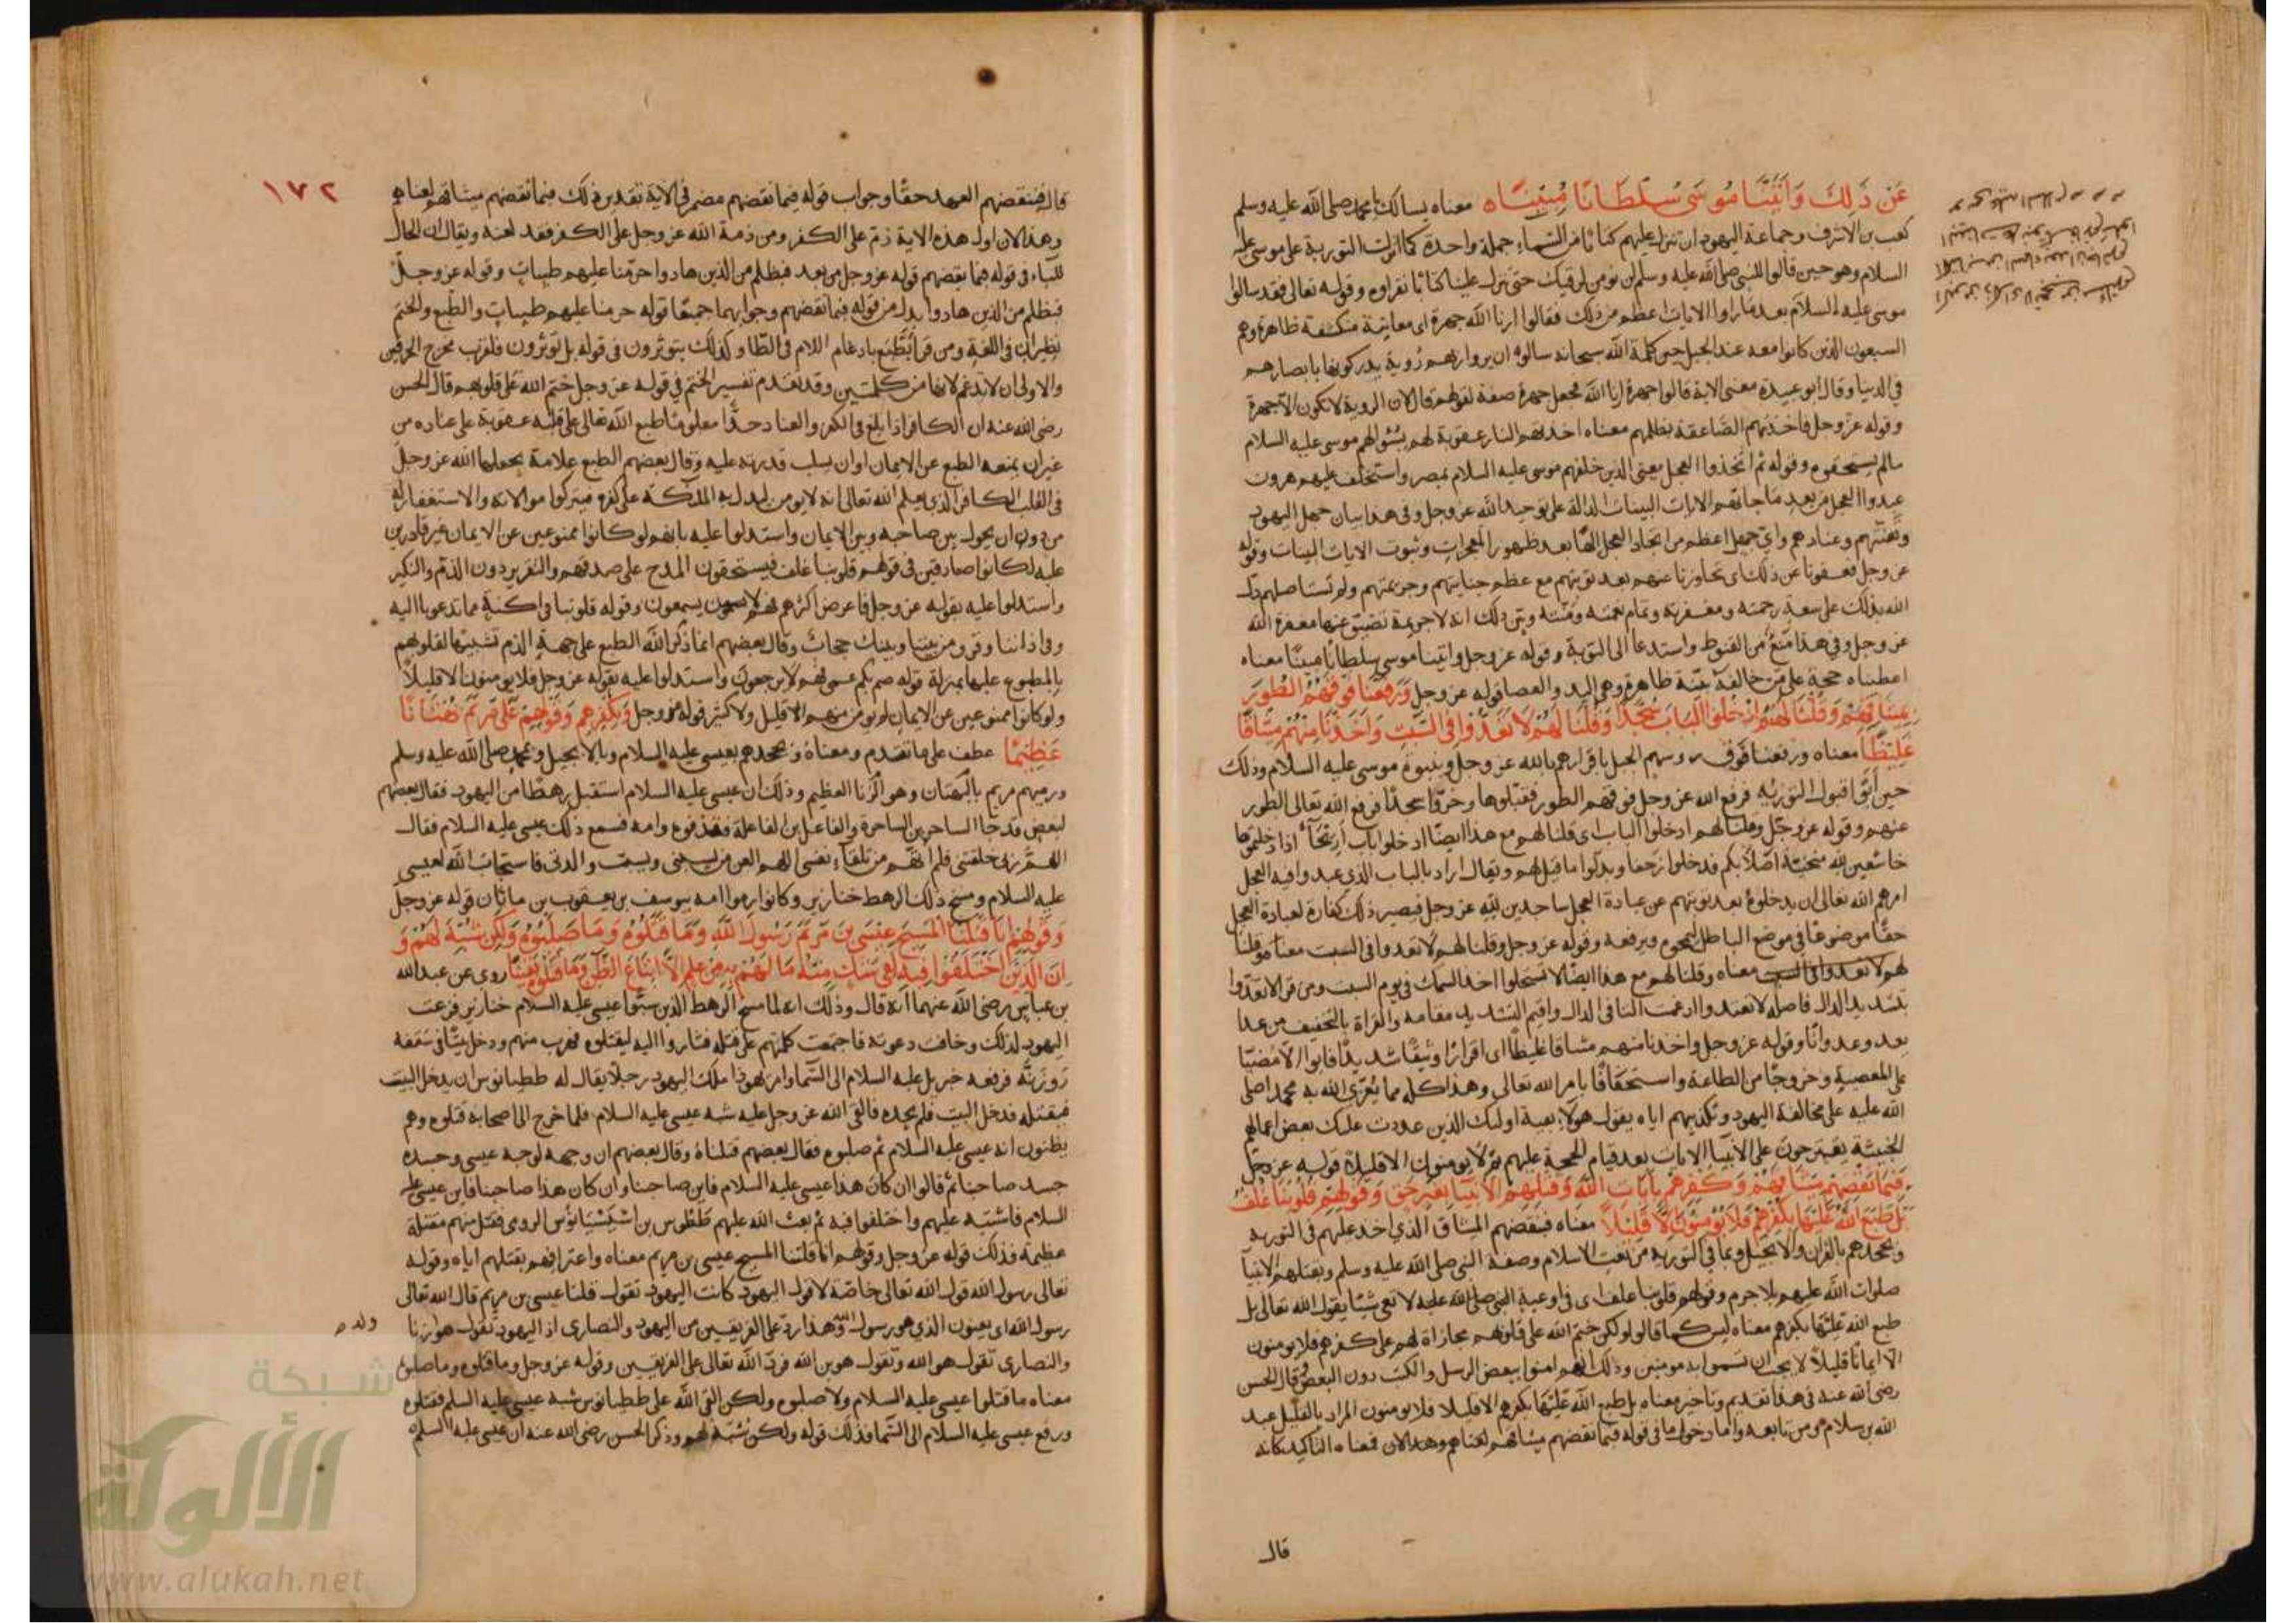 عَنْ ذَلِكَ وَآتَيْنَا مُوسَى سُلْطَانًا مُبِينًا معناه يسالك يا محمد صلى الله عليه وسلم
كعب بن الاشرف وجماعة اليهود ان تنزل عليهم كتابا من السماء جملة واحدة كما انزلت التورية على موسى عليه
السلام وهو حين قالوا للنبي صلى الله عليه وسلم لن نومن لرقيك حتى تنزل علينا كتابا نقراوه وقوله تعالى فقد سالوا
موسى عليه السلام بعد ما راوا الايات اعظم من ذلك فقالوا ارنا الله جهرة اى معاينة منكشفة ظاهرة وهم
السبعون الذين كانوا معه عند الجبل حين كلمه الله سبحانه سالوه ان يروا ربهم رؤية يدركونها بابصارهم
في الدنيا وقال ابو عبيدة معنى الاية قالوا جهرة ارنا الله فجعل جهرة صفة لقولهم قال لان الروية لا تكون الا جهرة
وقوله عز وجل فاخذتهم الصاعقة بظلمهم معناه اخذتهم النار عقوبة لهم بسؤالهم موسى عليه السلام
مالم يستحقوه وقوله ثم اتخذوا العجل يعنى الذين خلفهم موسى عليه السلام بمصر واستخلف عليهم هرون
عبدوا العجل من بعد ما جاتهم الايات البينات الدالة على توحيد الله عز وجل وفى هذا بيان جهل اليهود
وتعنتهم وعنادهم واي جهل اعظم من اتخاذ العجل الها بعد ظهور المعجزات وثبوت الايات البينات وقوله
عز وجل فعفونا عن ذلك اى تجاوزنا عنهم بعد توبتهم مع عظم جنايتهم وجريمتهم ولم نستاصلهم دل
الله بذلك على سعة رحمته ومغفرته وتمام نعمته ومنته وبين ذلك انه لا جريمة تضيق عنها مغفرة الله
عز وجل وفي هذا منع من القنوط واستدعا الى التوبة وقوله عز وجل واتينا موسى سلطانا مبينا معناه
اعطيناه حجة على من خالفه بينة ظاهرة وهى اليد والعصا قوله عز وجل وَرَفَعْنَا فَوْقَهُمُ الطُّورَ
بِمِيثَاقِهِمْ وَقُلْنَا لَهُمُ ادْخُلُوا الْبَابَ سُجَّدًا وَقُلْنَا لَهُمْ لَا تَعْدُوا فِي السَّبْتِ وَأَخَذْنَا مِنْهُمْ مِيثَاقًا
غَلِيظًا معناه ورفعنا فوق روسهم الجبل باقرارهم بالله عز وجل وبنبوة موسى عليه السلام وذلك
حين ابوا قبول التورية فرفع الله عز وجل فوقهم الطور فقبلوها وخروا سجدا فرفع الله تعالى الطور
عنهم وقوله عز وجل وقلنا لهم ادخلوا الباب اى قلنا لهم مع هذا ايضا ادخلوا باب اريحا اذا دخلتموها
خاشعين لله منحنية اصلابكم فدخلوا زحفا وبدلوا ما قيل لهم ويقال اراد بالباب الذي عبدوا فيه العجل
امرهم الله تعالى ان يدخلوه بعد توبتهم عن عبادة العجل ساجدين لله عز وجل فيصير ذلك كفارة لعبادة العجل
حقا موضوعا في موضع الباطل ليمحوه ويرفعه وقوله عز وجل وقلنا لهم لا تعدوا فى السبت معناه وقلنا
لهم لا تعدوا فى السبت معناه وقلنا لهم مع هذا ايضا لا تستحلوا اخذ السمك فى يوم السبت ومن قرا لا تعدوا
بتشديد الدال فاصله لا تعتدوا ادغمت التا فى الدال واقيم التشديد مقامه والقراة بالتخفيف من عدا
يعدو عدوانا وقوله عز وجل واخذنا منهم ميثاقا غليظا اى اقرارا وثيقا شديدا فابوا الا مضيا
على المعصية وخروجا من الطاعة واستخفافا بامر الله تعالى وهذا كله مما يعزى الله به محمدا صلى
الله عليه على مخالفة اليهود وتكذيبهم اياه يقول هولا بقية اوليك الذين عددت عليك بعض اعمالهم
الخبيثة يقترحون على الانبيا الايات بعد قيام الحجة عليهم ثم لا يومنون الا قليلا قوله عز وجل
فَبِمَا نَقْضِهِمْ مِيثَاقَهُمْ وَكُفْرِهِمْ بِآيَاتِ اللَّهِ وَقَتْلِهِمُ الْأَنْبِيَاءَ بِغَيْرِ حَقٍّ وَقَوْلِهِمْ قُلُوبُنَا غُلْفٌ
بَلْ طَبَعَ اللَّهُ عَلَيْهَا بِكُفْرِهِمْ فَلَا يُؤْمِنُونَ إِلَّا قَلِيلًا معناه فبنقضهم الميثاق الذي اخذ عليهم فى التورية
وبجحدهم بالقران والانجيل وبما في التورية من نعت الاسلام وصفة النبي صلى الله عليه وسلم وبقتلهم الانبيا
صلوات الله عليهم بلا جرم وقولهم قلوبنا غلف اى فى اوعية النبي صلى الله عليه لا نعى شيئا يقول الله تعالى بل
طبع الله عليها بكفرهم معناه ليس كما قالوا ولكن ختم الله على قلوبهم مجازاة لهم على كفرهم فلا يومنون
الا ايمانا قليلا لا يجب ان تسموا به مومنين وذلك انهم امنوا ببعض الرسل والكتب دون البعض وقال الحسن
رضى الله عنه فى هذا تقديم وتاخير معناه بل طبع الله عليها بكفرهم الا قليلا فلا يومنون المراد بالقليل عبد
الله بن سلام ومن تابعه واما دخول ما فى قوله فبما نقضهم ميثاقهم لعناهم وهذا لان معناه التاكيد كانه
قال
١٧٢
قال فبنقضهم العهد حقا وجواب قوله فبما نقضهم مضمر فى الاية تقديره ذلك فبما نقضهم ميثاقهم لعناهم
وهذا لان اول هذه الاية ذم على الكفر ومن ذمه الله عز وجل على الكفر فقد لعنه ويقال ان الحال
للباء فى قوله فبما نقضهم قوله عز وجل من بعد فبظلم من الذين هادوا حرمنا عليهم طيبات وقوله عز وجل
فبظلم من الذين هادوا بدل من قوله فبما نقضهم وجوابهما جميعا قوله حرمنا عليهم طيبات والطبع والختم
نظيران فى اللغة ومن قرا بل طبع بادغام اللام فى الطا وكذلك بتوثرون فى قوله بل توثرون فلقرب مخرج الحرفين
والاولى ان لا تدغم لانها من كلمتين وقد تقدم تفسير الختم في قوله عز وجل ختم الله على قلوبهم قال الحسن
رضى الله عنه ان الكافر اذا بلغ فى الكفر والعناد حدا معلوما طبع الله تعالى على قلبه عقوبة على عناده من
غير ان يمنعه الطبع عن الايمان او ان يسلب قدرته عليه وقال بعضهم الطبع علامة يجعلها الله عز وجل
فى القلب الكافر الذي يعلم الله تعالى انه لا يومن ليدل به الملائكة على كفره فيتركوا موالاته والاستغفار له
من دون ان يحول بين صاحبه وبين الايمان واستدلوا عليه بانهم لو كانوا ممنوعين عن الايمان غير قادرين
عليه لكانوا صادقين فى قولهم قلوبنا غلف فيستحقون المدح على صدقهم والتقرير دون الذم والنكير
واستدلوا عليه بقوله عز وجل فاعرض اكثرهم فهم لا يسمعون وقوله قلوبنا فى اكنة مما تدعونا اليه
وفى اذاننا وقر ومن بيننا وبينك حجاب وقال بعضهم انما ذكر الله الطبع على جهة الذم تشبيها لقلوبهم
بالمطبوع عليها بمنزلة قوله صم بكم عمى فهم لا يرجعون واستدلوا عليه بقوله عز وجل فلا يومنون الا قليلا
ولو كانوا ممنوعين عن الايمان لم يومن منهم الا قليل ولا كثير قوله عز وجل وَبِكُفْرِهِمْ وَقَوْلِهِمْ عَلَى مَرْيَمَ بُهْتَانًا
عَظِيمًا عطف على ما تقدم ومعناه وبجحدهم بعيسى عليه السلام وبالانجيل وبمحمد صلى الله عليه وسلم
ورميهم مريم بالبهتان وهو الزنا العظيم وذلك ان عيسى عليه السلام استقبل رهطا من اليهود فقال بعضهم
لبعض قد جا الساحر بن الساحرة والفاعل بن الفاعلة فقذفوه وامه فسمع ذلك عيسى عليه السلام فقال
اللهم ربى خلقتنى فلم اتهم من تلقاء نفسى اللهم العن من سبنى وسب والدتى فاستجاب الله لعيسى
عليه السلام ومسخ ذلك الرهط خنازير وكانوا رموا امه بيوسف بن يعقوب بن ماثان قوله عز وجل
وَقَوْلِهِمْ إِنَّا قَتَلْنَا الْمَسِيحَ عِيسَى بْنَ مَرْيَمَ رَسُولَ اللَّهِ وَمَا قَتَلُوهُ وَمَا صَلَبُوهُ وَلَكِنْ شُبِّهَ لَهُمْ وَ
إِنَّ الَّذِينَ اخْتَلَفُوا فِيهِ لَفِي شَكٍّ مِنْهُ مَا لَهُمْ بِهِ مِنْ عِلْمٍ إِلَّا اتِّبَاعَ الظَّنِّ وَمَا قَتَلُوهُ يَقِينًا روى عن عبد الله
بن عباس رضى الله عنهما انه قال وذلك انه لما مسخ الرهط الذين سبوا عيسى عليه السلام خنازير فزعت
اليهود لذلك وخافت دعوته فاجتمعت كلمتهم على قتله فثاروا اليه ليقتلوه فهرب منهم ودخل بيتا فى سقفه
روزنة فرفعه جبريل عليه السلام الى السما وامر يهوذا ملك اليهود رجلا يقال له ططيانوس ان يدخل البيت
فيقتله فدخل البيت فلم يجده فالقى الله عز وجل عليه شبه عيسى عليه السلام فلما خرج الى اصحابه قتلوه وهم
يظنون انه عيسى عليه السلام ثم صلبوه فقال بعضهم قتلناه وقال بعضهم ان وجهه لوجه عيسى وجسده
جسد صاحبنا ثم قالوا ان كان هذا عيسى عليه السلام فاين صاحبنا وان كان هذا صاحبنا فاين عيسى عليه
السلام فاشتبه عليهم واختلفوا فيه ثم بعث الله عليهم ططوس بن الرومى فقتل منهم مقتلة
عظيمة فذلك قوله عز وجل وقولهم انا قتلنا المسيح عيسى بن مريم معناه واعترافهم بقتلهم اياه وقوله
تعالى رسول الله قول الله تعالى خاصة لا قول اليهود كانت اليهود تقول قتلنا عيسى بن مريم قال الله تعالى
رسول الله اى يعنون الذي هو رسول الله وهذا رد على الفريقين من اليهود والنصارى اذ اليهود تقول هو ولد زنا
والنصارى تقول هو الله وتقول هو بن الله فرد الله تعالى على الفريقين وقوله عز وجل وما قتلوه وما صلبوه
معناه ما قتلوا عيسى عليه السلام ولا صلبوه ولكن القى الله على ططيانوس شبه عيسى عليه السلم فقتلوه
ورفع عيسى عليه السلام الى السما فذلك قوله ولكن شبه لهم وذكر الحسن رضى الله عنه ان عيسى عليه السلم
شبكة
الألوكة
www.alukah.net